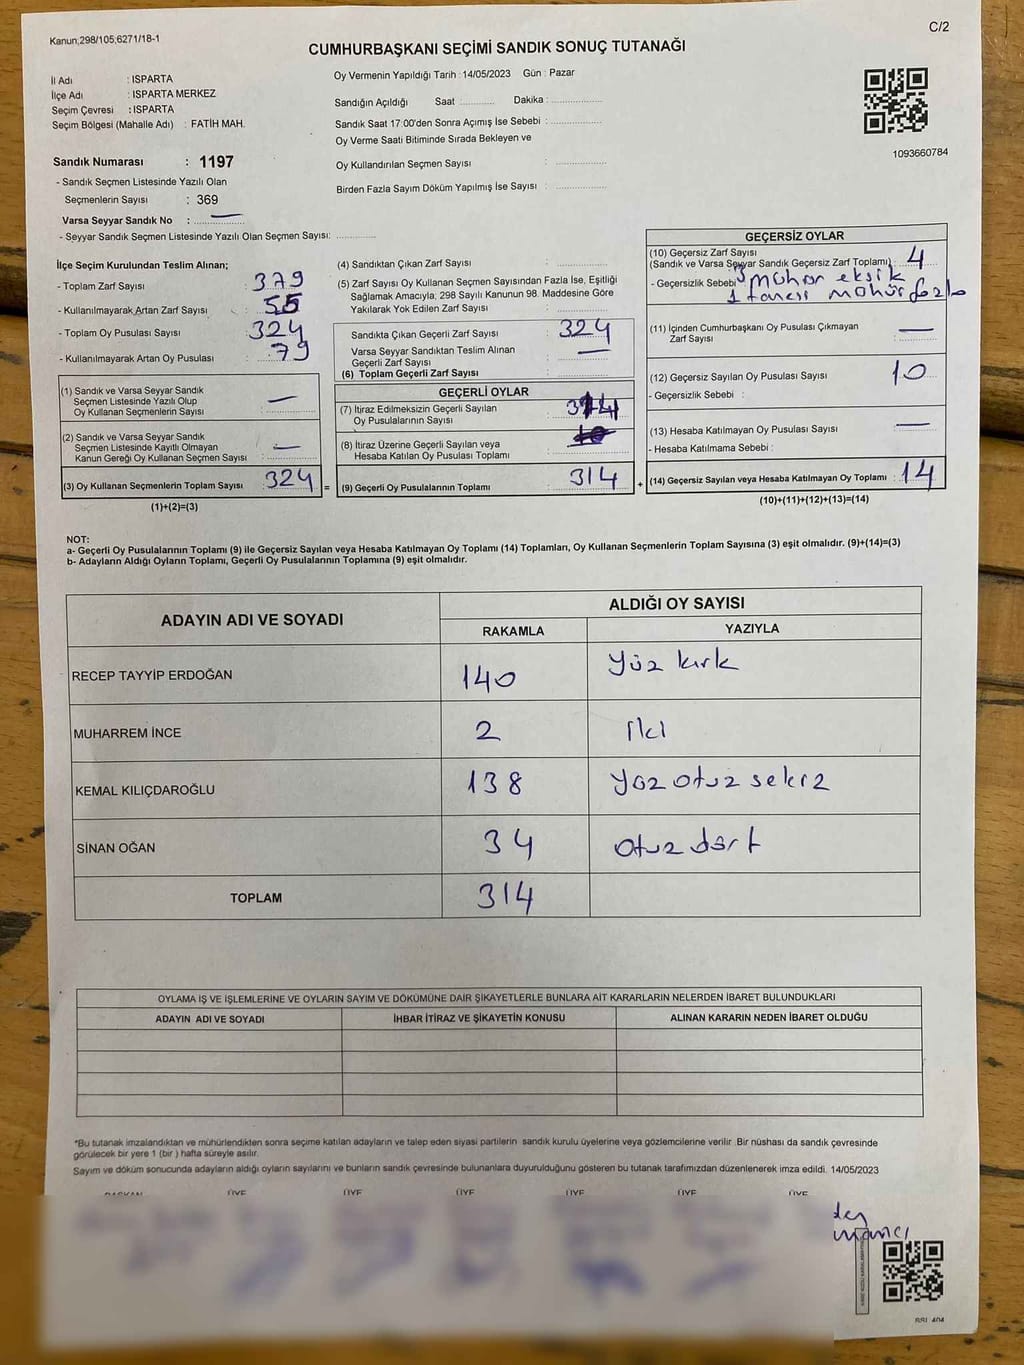 Kanun;298/105;6271/18-1
C/2
CUMHURBAŞKANI SEÇİMİ SANDIK SONUÇ TUTANAĞI
İl Adı : ISPARTA
İlçe Adı : ISPARTA MERKEZ
Seçim Çevresi : ISPARTA
Seçim Bölgesi (Mahalle Adı) : FATİH MAH.
Oy Vermenin Yapıldığı Tarih : 14/05/2023 Gün : Pazar
Sandığın Açıldığı Saat ............ Dakika : ..................
Sandık Saat 17:00'den Sonra Açımış İse Sebebi : ..................
Oy Verme Saati Bitiminde Sırada Bekleyen ve
Oy Kullandırılan Seçmen Sayısı : ..................
Birden Fazla Sayım Döküm Yapılmış İse Sayısı : ..................
1093660784
Sandık Numarası : 1197
- Sandık Seçmen Listesinde Yazılı Olan
Seçmenlerin Sayısı : 369
Varsa Seyyar Sandık No : —
- Seyyar Sandık Seçmen Listesinde Yazılı Olan Seçmen Sayısı: ..............
İlçe Seçim Kurulundan Teslim Alınan;
- Toplam Zarf Sayısı : 379
- Kullanılmayarak Artan Zarf Sayısı : 55
- Toplam Oy Pusulası Sayısı : 324
- Kullanılmayarak Artan Oy Pusulası : 79
(1) Sandık ve Varsa Seyyar Sandık
Seçmen Listesinde Yazılı Olup
Oy Kullanan Seçmenlerin Sayısı : —
(2) Sandık ve Varsa Seyyar Sandık
Seçmen Listesinde Kayıtlı Olmayan
Kanun Gereği Oy Kullanan Seçmen Sayısı : —
(3) Oy Kullanan Seçmenlerin Toplam Sayısı : 324 =
(1)+(2)=(3)
(4) Sandıktan Çıkan Zarf Sayısı : ..................
(5) Zarf Sayısı Oy Kullanan Seçmen Sayısından Fazla İse, Eşitliği
Sağlamak Amacıyla; 298 Sayılı Kanunun 98. Maddesine Göre
Yakılarak Yok Edilen Zarf Sayısı :
Sandıkta Çıkan Geçerli Zarf Sayısı : 324
Varsa Seyyar Sandıktan Teslim Alınan
Geçerli Zarf Sayısı : —
(6) Toplam Geçerli Zarf Sayısı :
GEÇERLİ OYLAR
(7) İtiraz Edilmeksizin Geçerli Sayılan
Oy Pusulalarının Sayısı : 314
(8) İtiraz Üzerine Geçerli Sayılan veya
Hesaba Katılan Oy Pusulası Toplamı :
(9) Geçerli Oy Pusulalarının Toplamı : 314 +
GEÇERSİZ OYLAR
(10) Geçersiz Zarf Sayısı
(Sandık ve Varsa Seyyar Sandık Geçersiz Zarf Toplamı) : 4
- Geçersizlik Sebebi 3 mühür eksik
1 tanesi mühür fazla
(11) İçinden Cumhurbaşkanı Oy Pusulası Çıkmayan
Zarf Sayısı : —
(12) Geçersiz Sayılan Oy Pusulası Sayısı : 10
- Geçersizlik Sebebi :
(13) Hesaba Katılmayan Oy Pusulası Sayısı : —
- Hesaba Katılmama Sebebi :
(14) Geçersiz Sayılan veya Hesaba Katılmayan Oy Toplamı : 14
(10)+(11)+(12)+(13)=(14)
NOT:
a- Geçerli Oy Pusulalarının Toplamı (9) ile Geçersiz Sayılan veya Hesaba Katılmayan Oy Toplamı (14) Toplamları, Oy Kullanan Seçmenlerin Toplam Sayısına (3) eşit olmalıdır. (9)+(14)=(3)
b- Adayların Aldığı Oyların Toplamı, Geçerli Oy Pusulalarının Toplamına (9) eşit olmalıdır.
ADAYIN ADI VE SOYADI ALDIĞI OY SAYISI
RAKAMLA YAZIYLA
RECEP TAYYİP ERDOĞAN 140 Yüz kırk
MUHARREM İNCE 2 İki
KEMAL KILIÇDAROĞLU 138 Yüz otuz sekiz
SİNAN OĞAN 34 Otuz dört
TOPLAM 314
OYLAMA İŞ VE İŞLEMLERİNE VE OYLARIN SAYIM VE DÖKÜMÜNE DAİR ŞİKAYETLERLE BUNLARA AİT KARARLARIN NELERDEN İBARET BULUNDUKLARI
ADAYIN ADI VE SOYADI İHBAR İTİRAZ VE ŞİKAYETİN KONUSU ALINAN KARARIN NEDEN İBARET OLDUĞU
*Bu tutanak imzalandıktan ve mühürlendikten sonra seçime katılan adayların ve talep eden siyasi partilerin sandık kurulu üyelerine veya gözlemcilerine verilir .Bir nüshası da sandık çevresinde
görülecek bir yere 1 (bir ) hafta süreyle asılır.
Sayım ve döküm sonucunda adayların aldığı oyların sayılarını ve bunların sandık çevresinde bulunanlara duyurulduğunu gösteren bu tutanak tarafımızdan düzenlenerek imza edildi. 14/05/2023
BAŞKAN ÜYE ÜYE ÜYE ÜYE ÜYE ÜYE